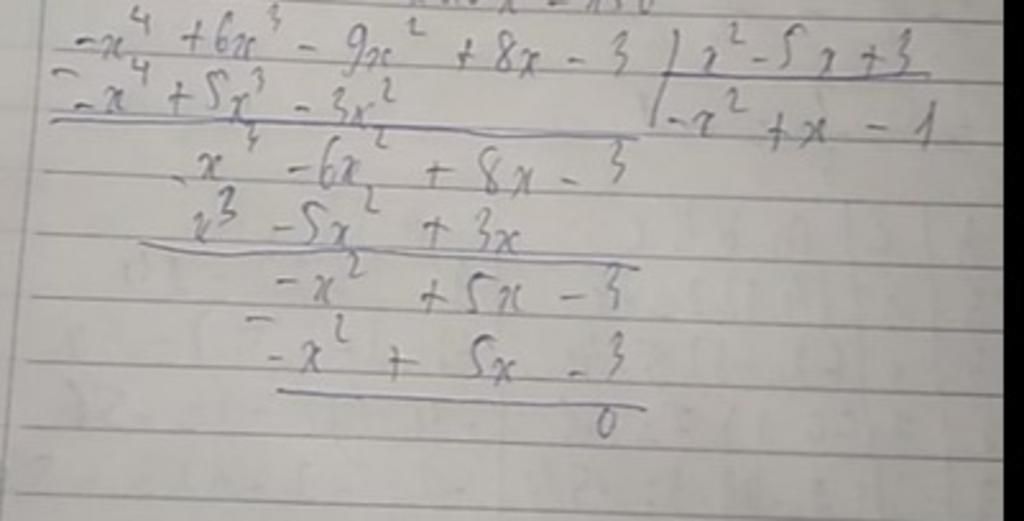 -x⁴ + 6x³ - 9x² + 8x - 3 | x² - 5x + 3
- -x⁴ + 5x³ - 3x² | -x² + x - 1
x³ - 6x² + 8x - 3
- x³ - 5x² + 3x
-x² + 5x - 3
- -x² + 5x - 3
0